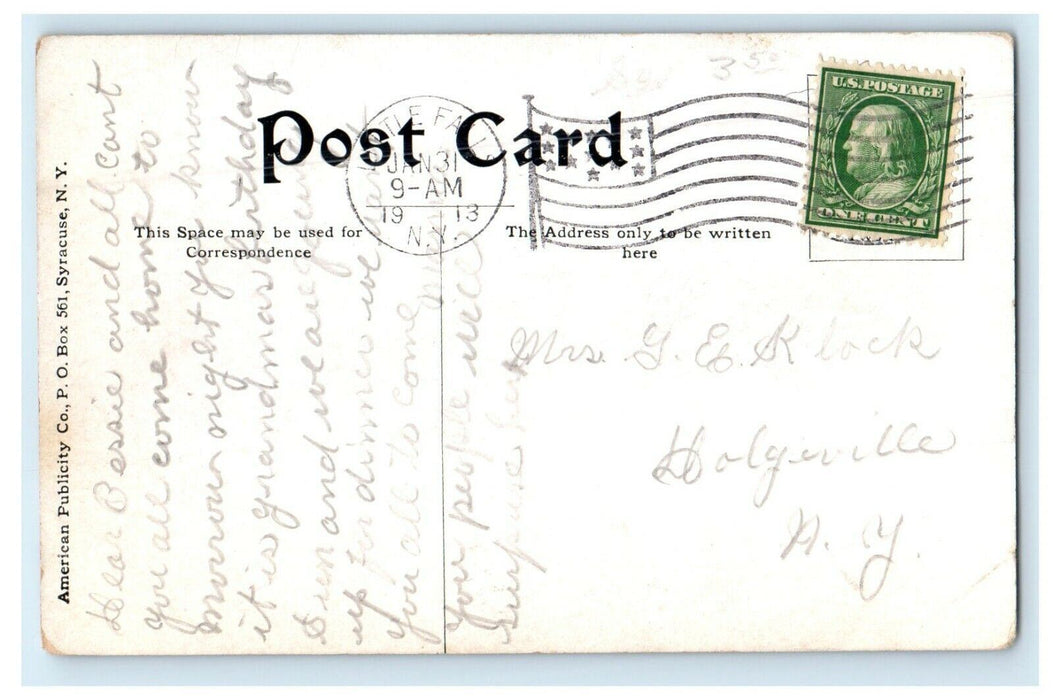 350
U.S. POSTAGE
ONE CENT
Post Card
JAN 31
9-AM
19 13
N.Y.
This Space may be used for
Correspondence
The Address only to be written
here
American Publicity Co., P. O. Box 561, Syracuse, N. Y.
Dear Bessie and all cant
you all come home to
morrow night you know
it is grandmas birthday
and we are
up for dinner we want
you all to come
you people will
Surprise her
Mrs. G. E. Klock
Dolgeville
N. Y.